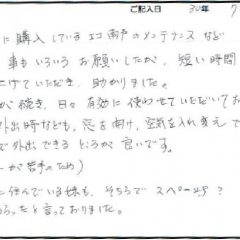 ご記入日 30年 7
に購入しているエコ雨戸のメンテナンスなど
事もいろいろお願いしたが、短い時間
上げていただき、助かりました。
が続き、日々有効に使わせていただいてお
外出時なども、窓を開け、空気を入れ変えて
で外出できるところが良いです。
が苦手のため)
に住んでいる妹も、そちらでスペース?
らったと言っておりました。